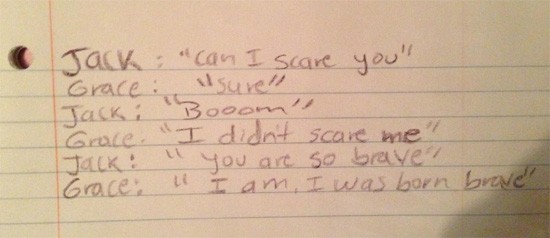 Jack: "can I scare you"
Grace: "sure"
Jack: "Booom"
Grace. "I didn't scare me"
Jack: "you are so brave"
Grace: "I am, I was born brave"